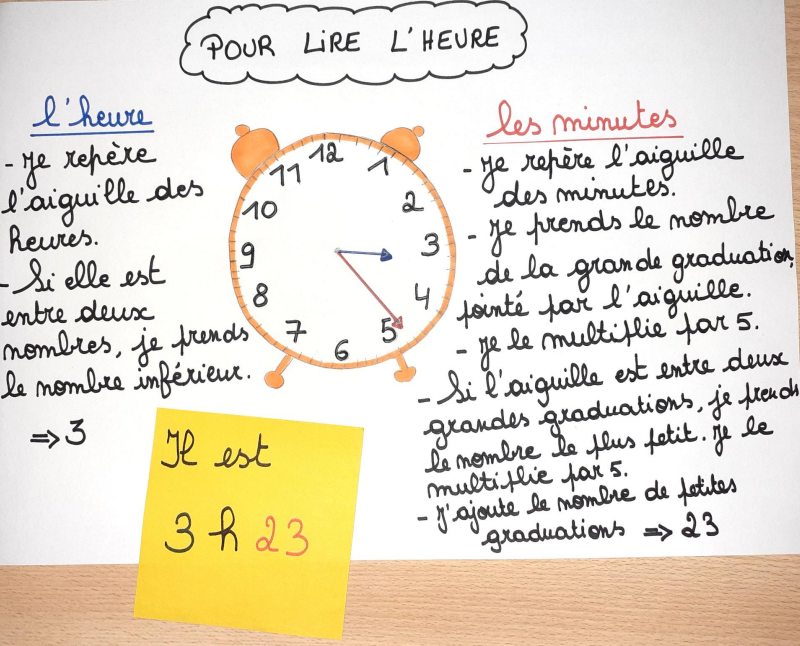 POUR LIRE L'HEURE
l'heure
- Je repère
l'aiguille des
heures.
- Si elle est
entre deux
nombres, je prends
le nombre inférieur.
=> 3
12
1
2
3
4
5
6
7
8
9
10
11
les minutes
- Je repère l'aiguille
des minutes.
- Je prends le nombre
de la grande graduation,
pointé par l'aiguille.
- Je le multiplie par 5.
- Si l'aiguille est entre deux
grandes graduations, je prends
le nombre le plus petit. Je le
multiplie par 5.
- J'ajoute le nombre de petites
graduations => 23
Il est
3 h 23